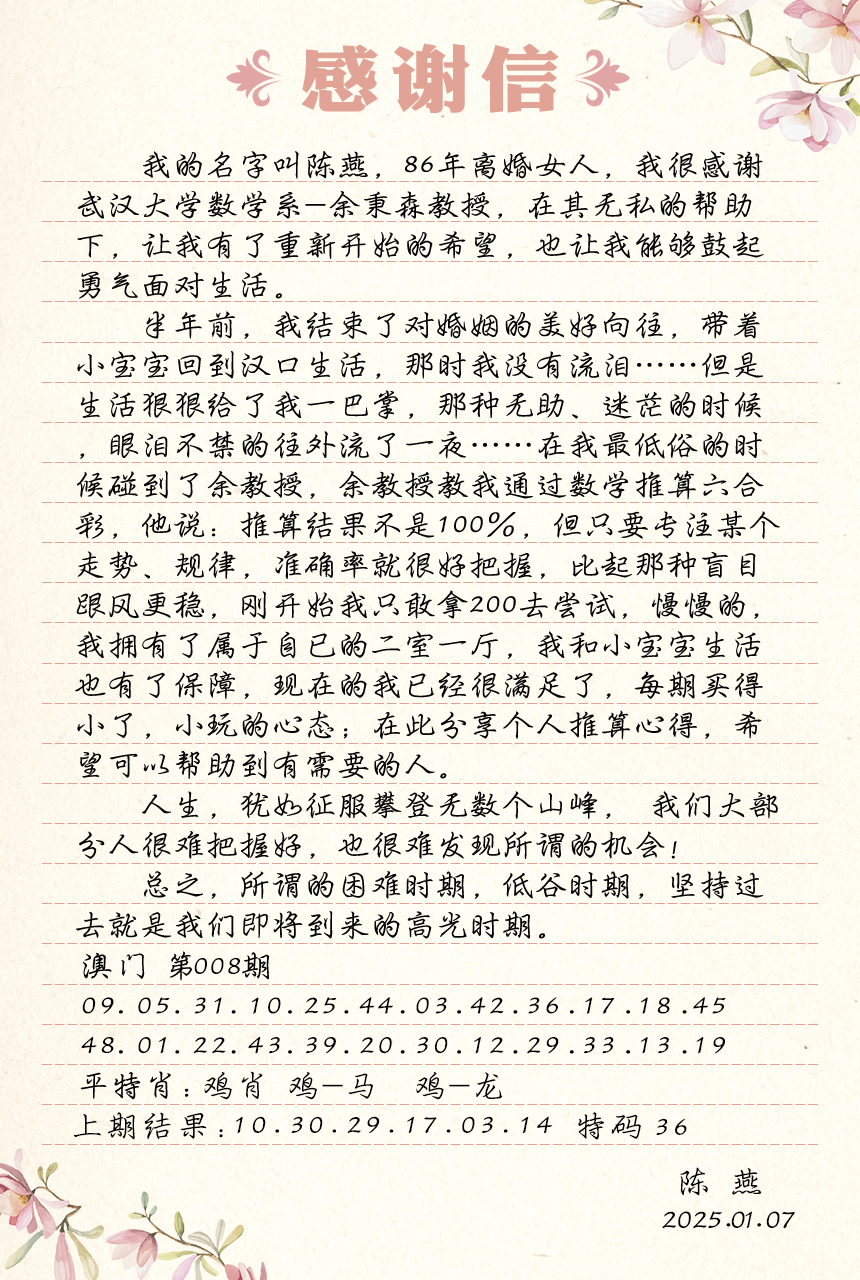 感谢信
我的名字叫陈燕，86年离婚女人，我很感谢
武汉大学数学系—余秉森教授，在其无私的帮助
下，让我有了重新开始的希望，也让我能够鼓起
勇气面对生活。
半年前，我结束了对婚姻的美好向往，带着
小宝宝回到汉口生活，那时我没有流泪……但是
生活狠狠给了我一巴掌，那种无助、迷茫的时候
，眼泪不禁的往外流了一夜……在我最低俗的时
候碰到了余教授，余教授教我通过数学推算六合
彩，他说：推算结果不是100%，但只要专注某个
走势、规律，准确率就很好把握，比起那种盲目
跟风更稳，刚开始我只敢拿200去尝试，慢慢的，
我拥有了属于自已的二室一厅，我和小宝宝生活
也有了保障，现在的我已经很满足了，每期买得
小了，小玩的心态；在此分享个人推算心得，希
望可以帮助到有需要的人。
人生，犹如征服攀登无数个山峰， 我们大部
分人很难把握好，也很难发现所谓的机会！
总之，所谓的困难时期，低谷时期，坚持过
去就是我们即将到来的高光时期。
澳门 第008期
09.05.31.10.25.44.03.42.36.17.18.45
48.01.22.43.39.20.30.12.29.33.13.19
平特肖：鸡肖 鸡—马 鸡—龙
上期结果：10.30.29.17.03.14 特码 36
陈 燕
2025.01.07